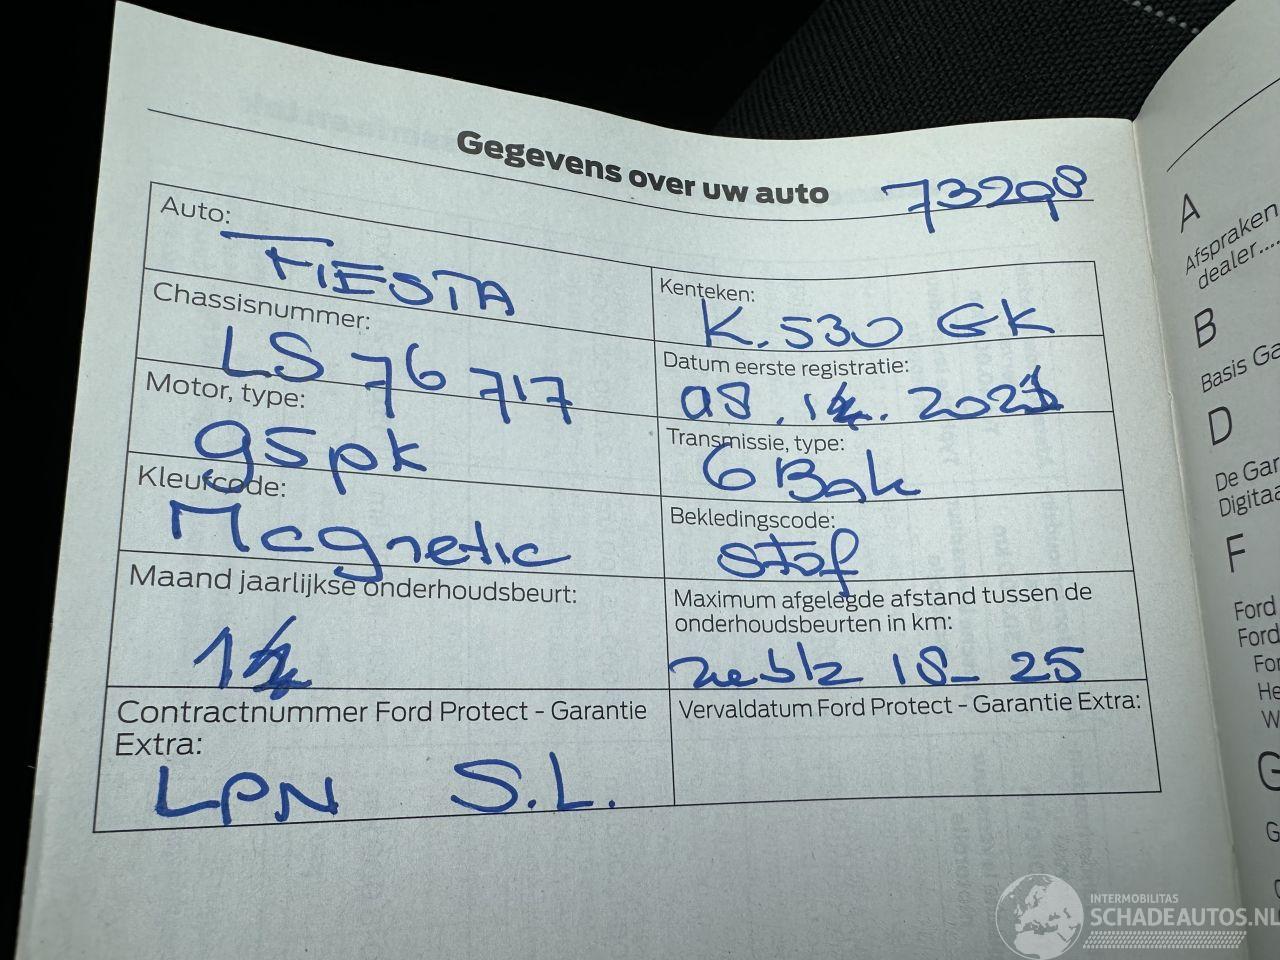 Gegevens over uw auto
732998
Auto:
FIESTA
Kenteken:
K.530 GK
Chassisnummer:
LS 76 717
Datum eerste registratie:
Motor, type:
95pk
Transmissie, type:
6 Bak
Kleurcode:
Magnetic
Bekledingscode:
stof
Maand jaarlijkse onderhoudsbeurt:
Maximum afgelegde afstand tussen de
onderhoudsbeurten in km:
18- 25
Contractnummer Ford Protect - Garantie
Extra:
LPN S.L.
Vervaldatum Ford Protect - Garantie Extra:
A
Afspraken
dealer....
B
Basis Ga
D
De Gar
Digitaa
F
Ford
Ford
For
He
W
G
G
INTERMOBILITAS
SCHADEAUTOS.NL